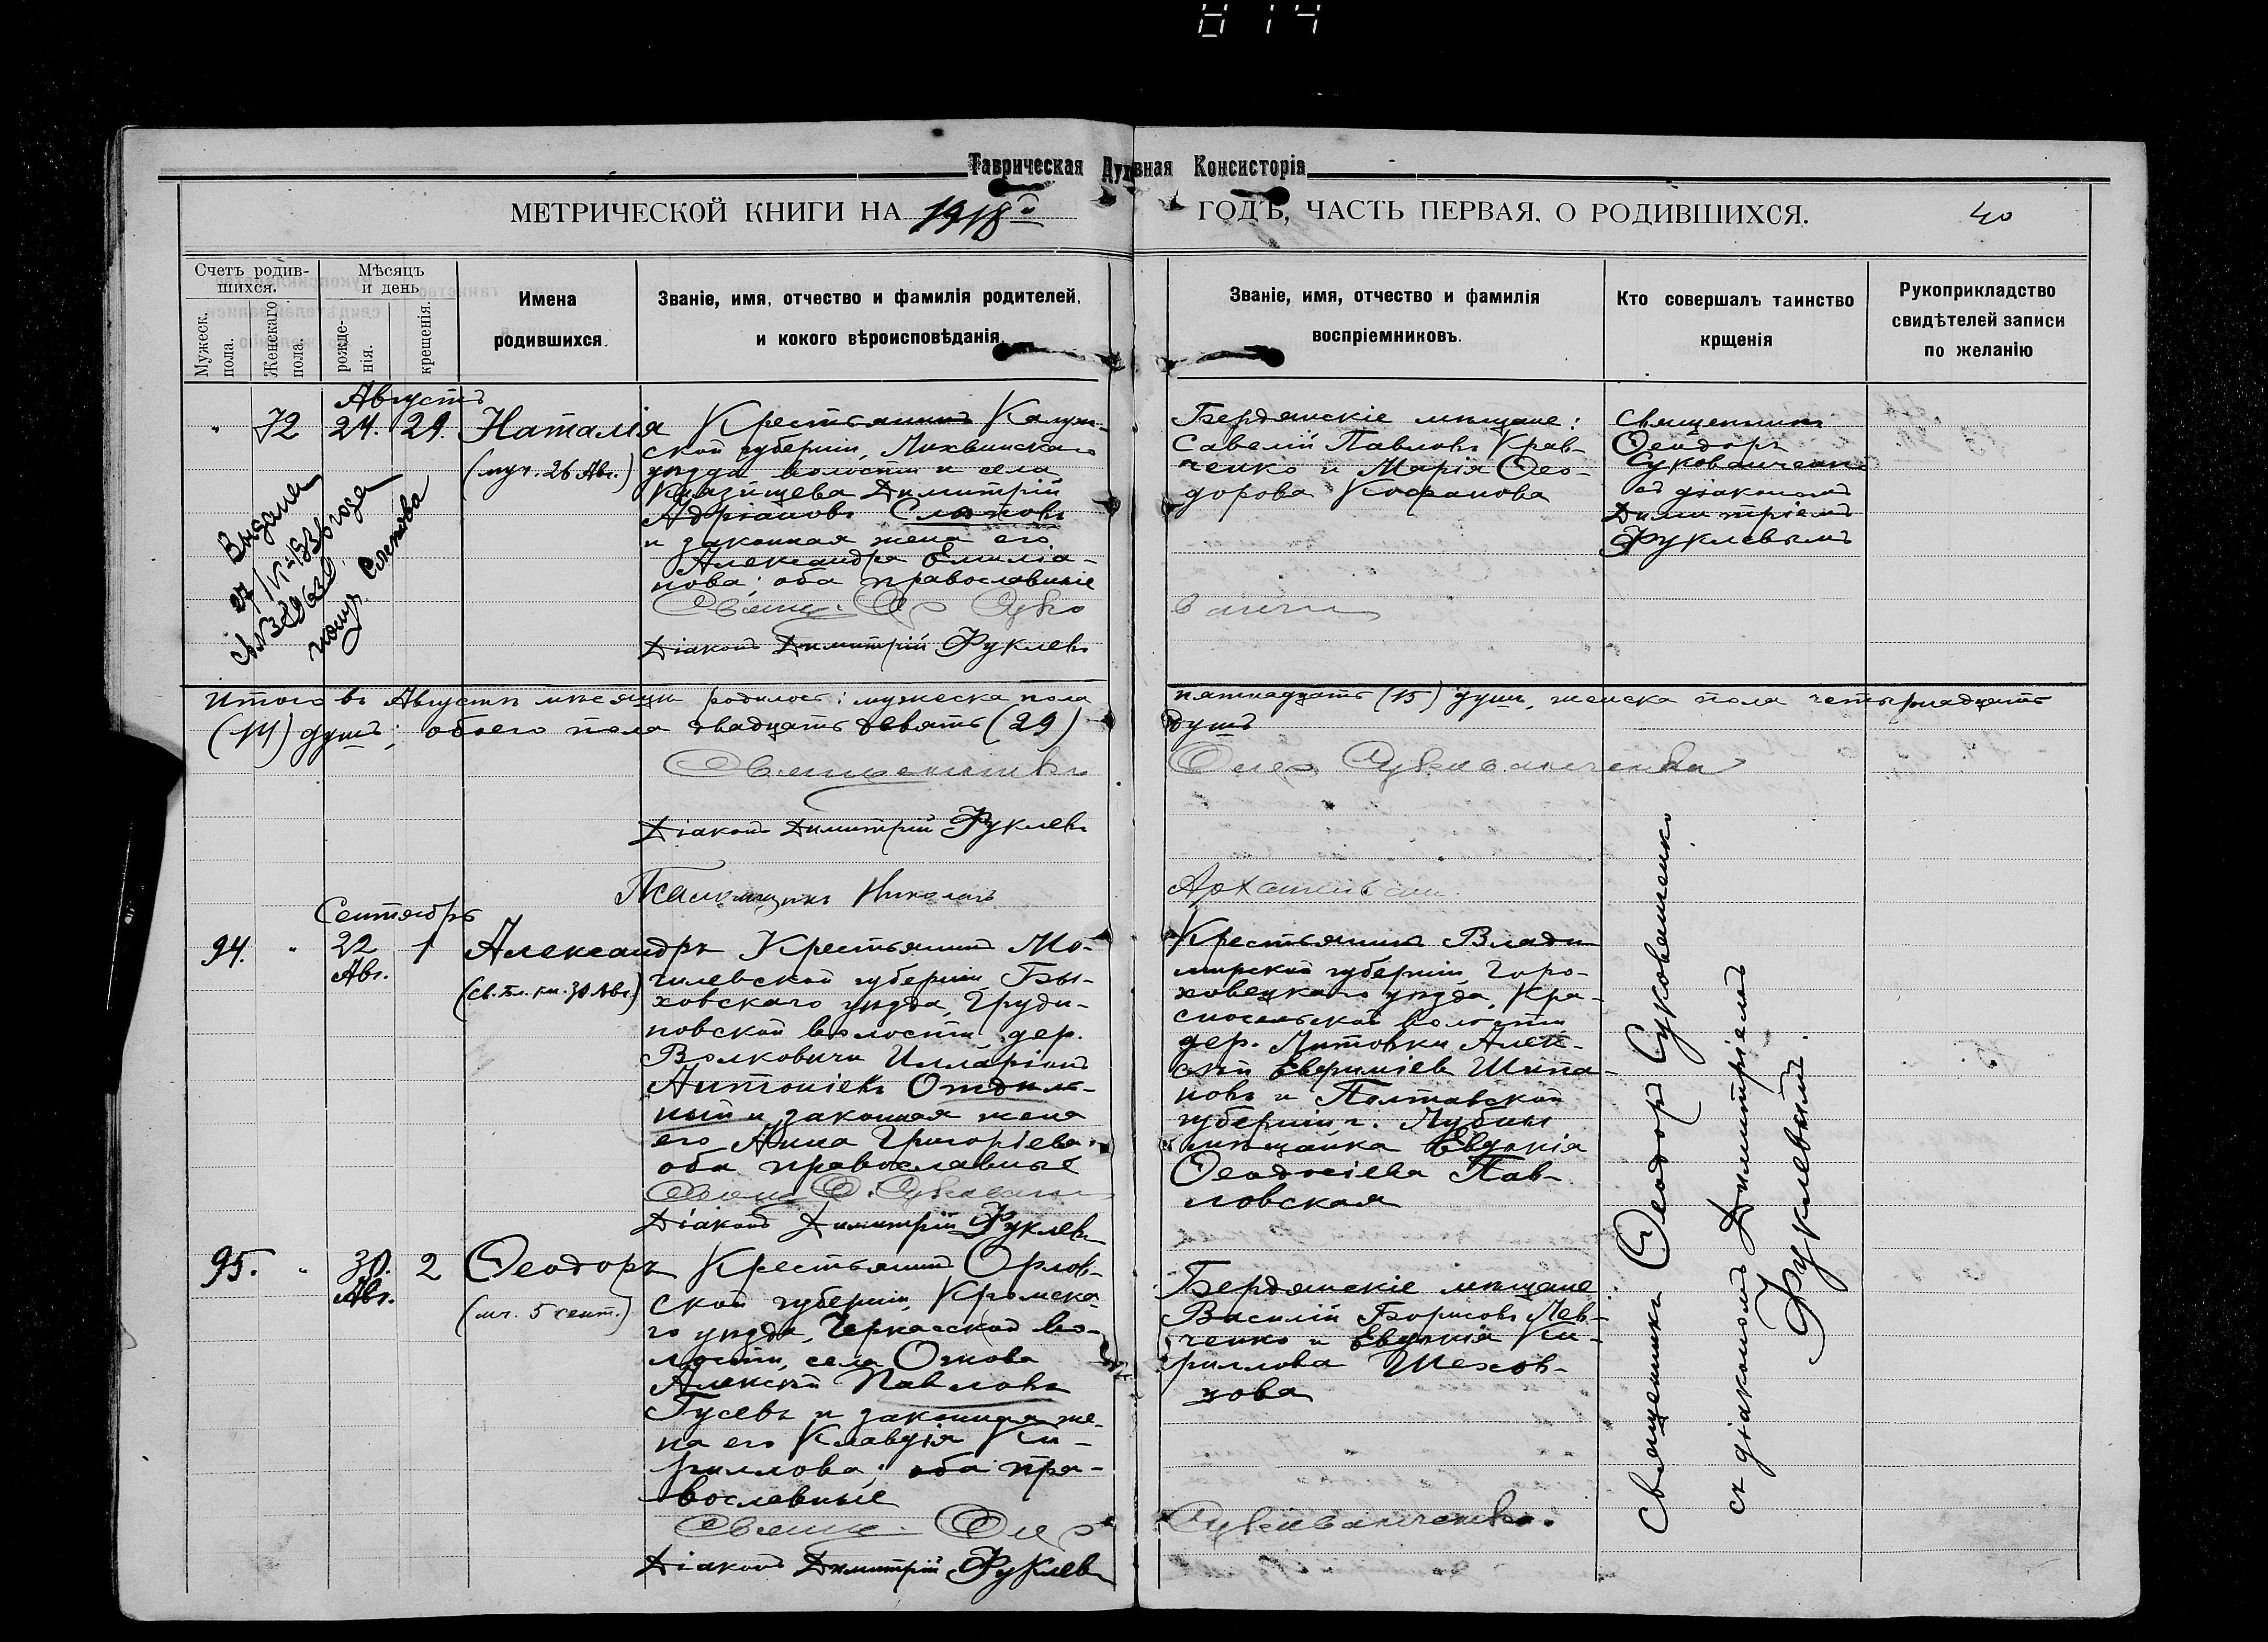 814
Таврическая Духвная Консисторія
МЕТРИЧЕСКОЙ КНИГИ НА 1918й ГОДЪ, ЧАСТЬ ПЕРВАЯ, О РОДИВШИХСЯ.
40
Счетъ родив-
шихся.
Мужеск.
пола.
Женскаго
пола.
Мѣсяцъ
и день
рожде-
нія.
крещенія.
Имена
родившихся.
Званіе, имя, отчество и фамилія родителей,
и кокого вѣроисповѣданія
Званіе, имя, отчество и фамилія
воспріемниковъ.
Кто совершалъ таинство
крщенія
Рукоприкладство
свидѣтелей записи
по желанію
Августъ
" 72 24. 29. Наталія
(муч. 26 Авг.)
Крестьянинъ Калуж-
ской губерніи, Лихвинскаго
уѣзда волости и села
Димитрій
Адріановъ Слотовъ
и законная жена его
Александра Емиліа-
нова; оба православные
Діаконъ Димитрій Фуклевъ
Бердянскіе мѣщане:
Савелій Павловъ Крав-
ченко и Марія Ѳео-
дорова Кофанова
Священникъ
Ѳеодоръ
Сукованченко
съ діакономъ
Димитріемъ
Фуклевымъ
Выдана
года
Итого въ Августѣ мѣсяцѣ родилось: мужеска пола пятнадцать (15) душъ, женска пола четырнадцать
(14) душъ; обоего пола двадцать девять (29) душъ
Священникъ Ѳеод. Сукованченко
Діаконъ Димитрій Фуклевъ
Псаломщикъ Николай
Сентябрь
94. " 22 Авг. 1 Александръ
(св. бл. кн. 30 Авг.)
Крестьянинъ Мо-
гилевской губерніи, Бы-
ховскаго уѣзда, Груди-
новской волости дер.
Волковичи Илларіонъ
Антоніевъ Отдѣль-
ный и законная жена
его Анна Григоріева;
оба православные
Діаконъ Димитрій Фуклевъ
Крестьянинъ Влади-
мирской губерніи, Горо-
ховецкаго уѣзда, Кра-
сносельской волости
дер. Литовки Алек-
сѣй Евфиміевъ Шипа-
новъ и Полтавской
губерніи г. Лубны
мѣщанка Евдокія
Ѳеодосіева Пав-
ловская
Священникъ Ѳеодоръ Сукованченко
съ діакономъ Димитріемъ
Фуклевымъ.
95. " 30. Авг. 2 Ѳеодоръ
(мч. 5 сент.)
Крестьянинъ Орлов-
ской губерніи, Кромска-
го уѣзда, Черкасской во-
лости, села
Алексѣй Павловъ
Гусевъ и законная же-
на его Клавдія Ки-
риллова; оба пра-
вославные
Діаконъ Димитрій Фуклевъ
Бердянскіе мѣщане
Василій Борисовъ Лев-
ченко и Евдокія Ки-
риллова Шехов-
цова
Сукованченко.